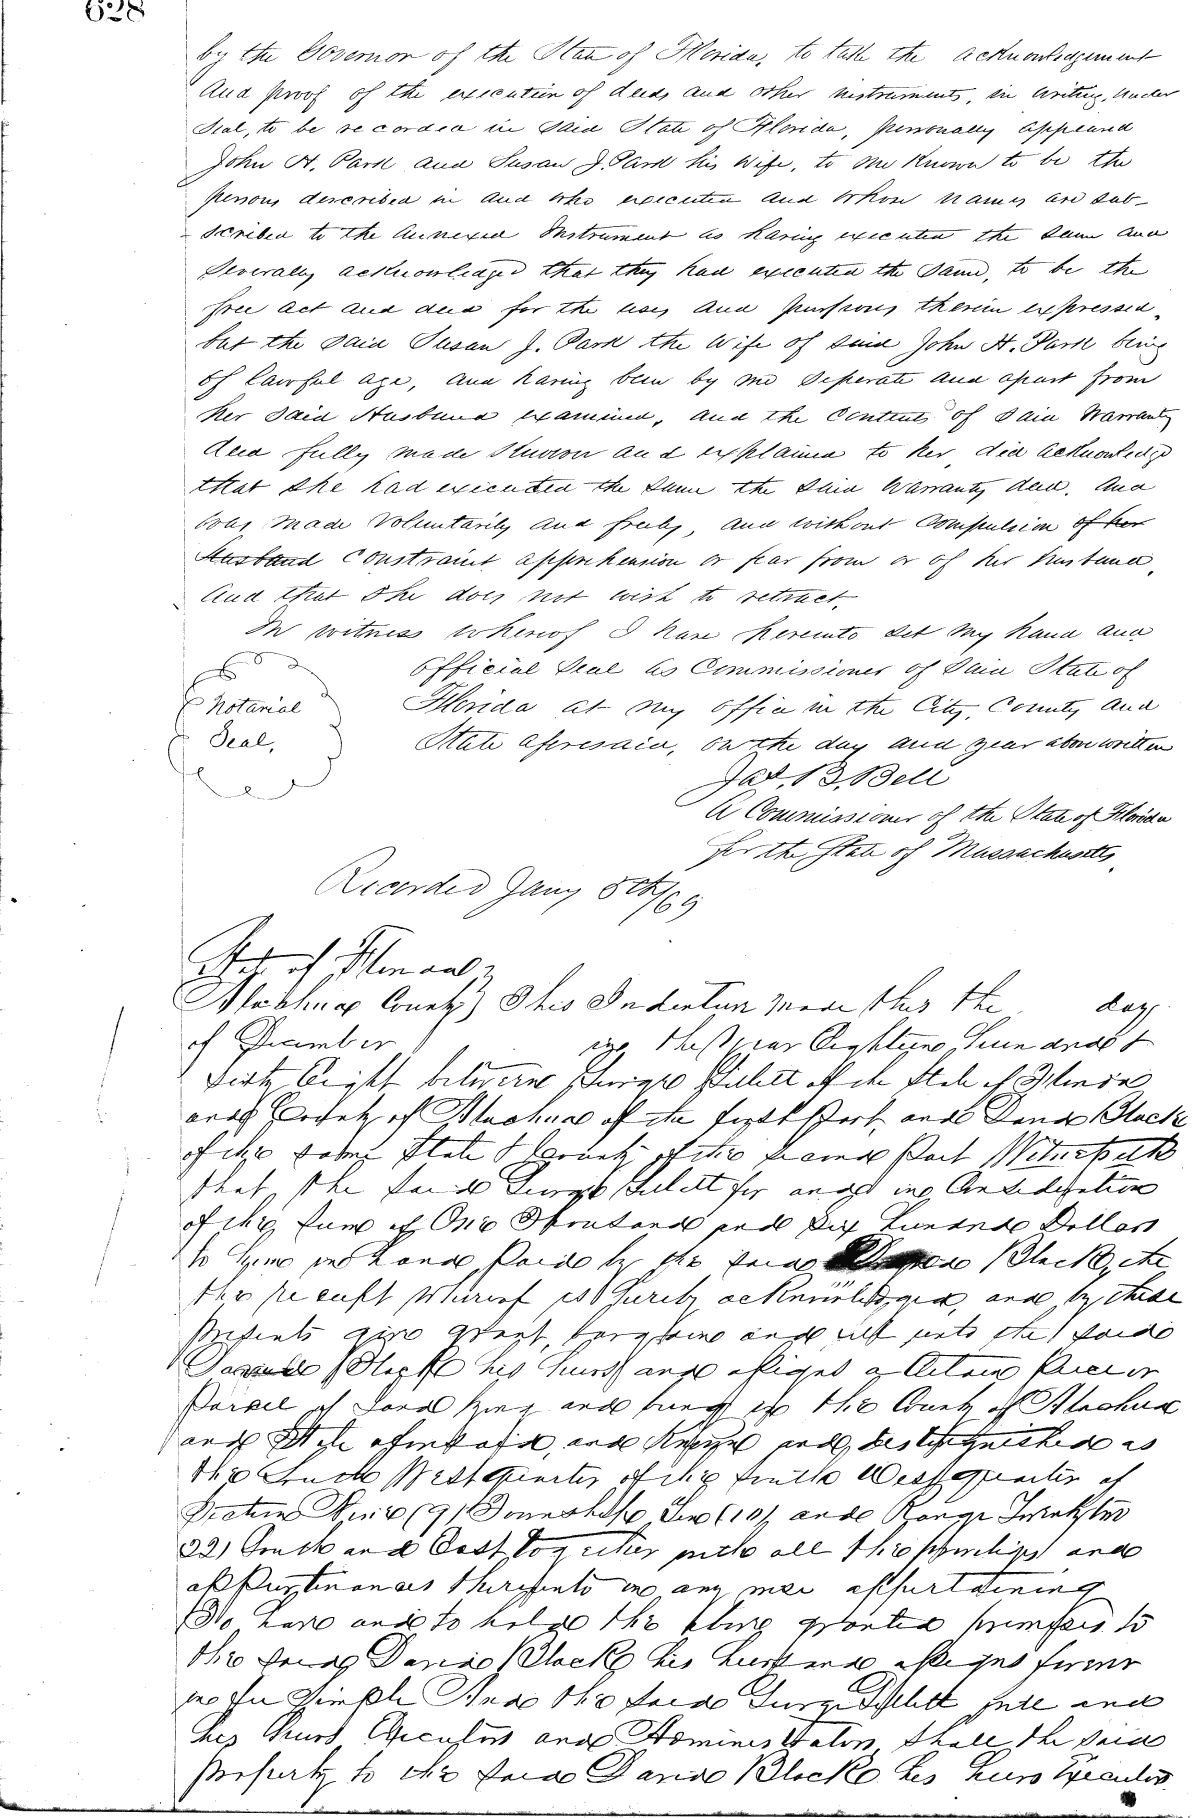 628
by the Governor of the State of Florida, to take the acknowledgement
and proof of the execution of deeds and other instruments, in writing, under
Seal, to be recorded in said State of Florida, personally appeared
John H. Park and Susan J. Park his wife, to me known to be the
persons described in and who executed and whose names are sub-
scribed to the annexed Instrument as having executed the same and
severally acknowledged that they had executed the same, to be the
free act and deed for the uses and purposes therein expressed.
but the said Susan J. Park the wife of said John H. Park being
of lawful age, and having been by me seperate and apart from
her said Husband examined, and the contents of said Warranty
deed fully made known and explained to her, did acknowledge
that she had executed the same the said Warranty deed. and
was made voluntarily and freely, and without compulsion of her
Husband constraint apprehension or fear from or of her husband,
and that she does not wish to retract.
In witness whereof I have hereunto set my hand and
official seal as Commissioner of said State of
Notarial Florida at my office in the City, County and
Seal, State aforesaid, on the day and year above written
Jas. B. Bell
A Commissioner of the State of Florida
for the State of Massachusetts.
Recorded Jany 8th/69
State of Florida
Alachua County This Indenture made this the day
of December in the year Eighteen Hundred &
Sixty Eight between George of the State of Florida
and County of Alachua of the first Part and David Black
of the same State & County of the second Part Witnesseth
that the said George for and in Consideration
of the sum of One Thousand and Six Hundred Dollars
to him in hand Paid by the said Black, the
the receipt whereof is hereby acknowledged, and by these
Presents give grant, bargain and sell unto the said
Black his heirs and assigns a Certain Piece or
Parcel of Land lying and being in the County of Alachua
and State aforesaid, and Known and distinguished as
the South West quarter of the South West quarter of
Section Nine (9) Township Ten (10) and Range Twenty two
22) South and East together with all the privileges and
appurtinances thereunto in any wise appurtaining
To have and to hold the above granted premises to
the said David Black his heirs and assigns forever
in fee Simple And the said George and
his heirs Executors and Administrators shall the said
Property to the said David Black his heirs Executors